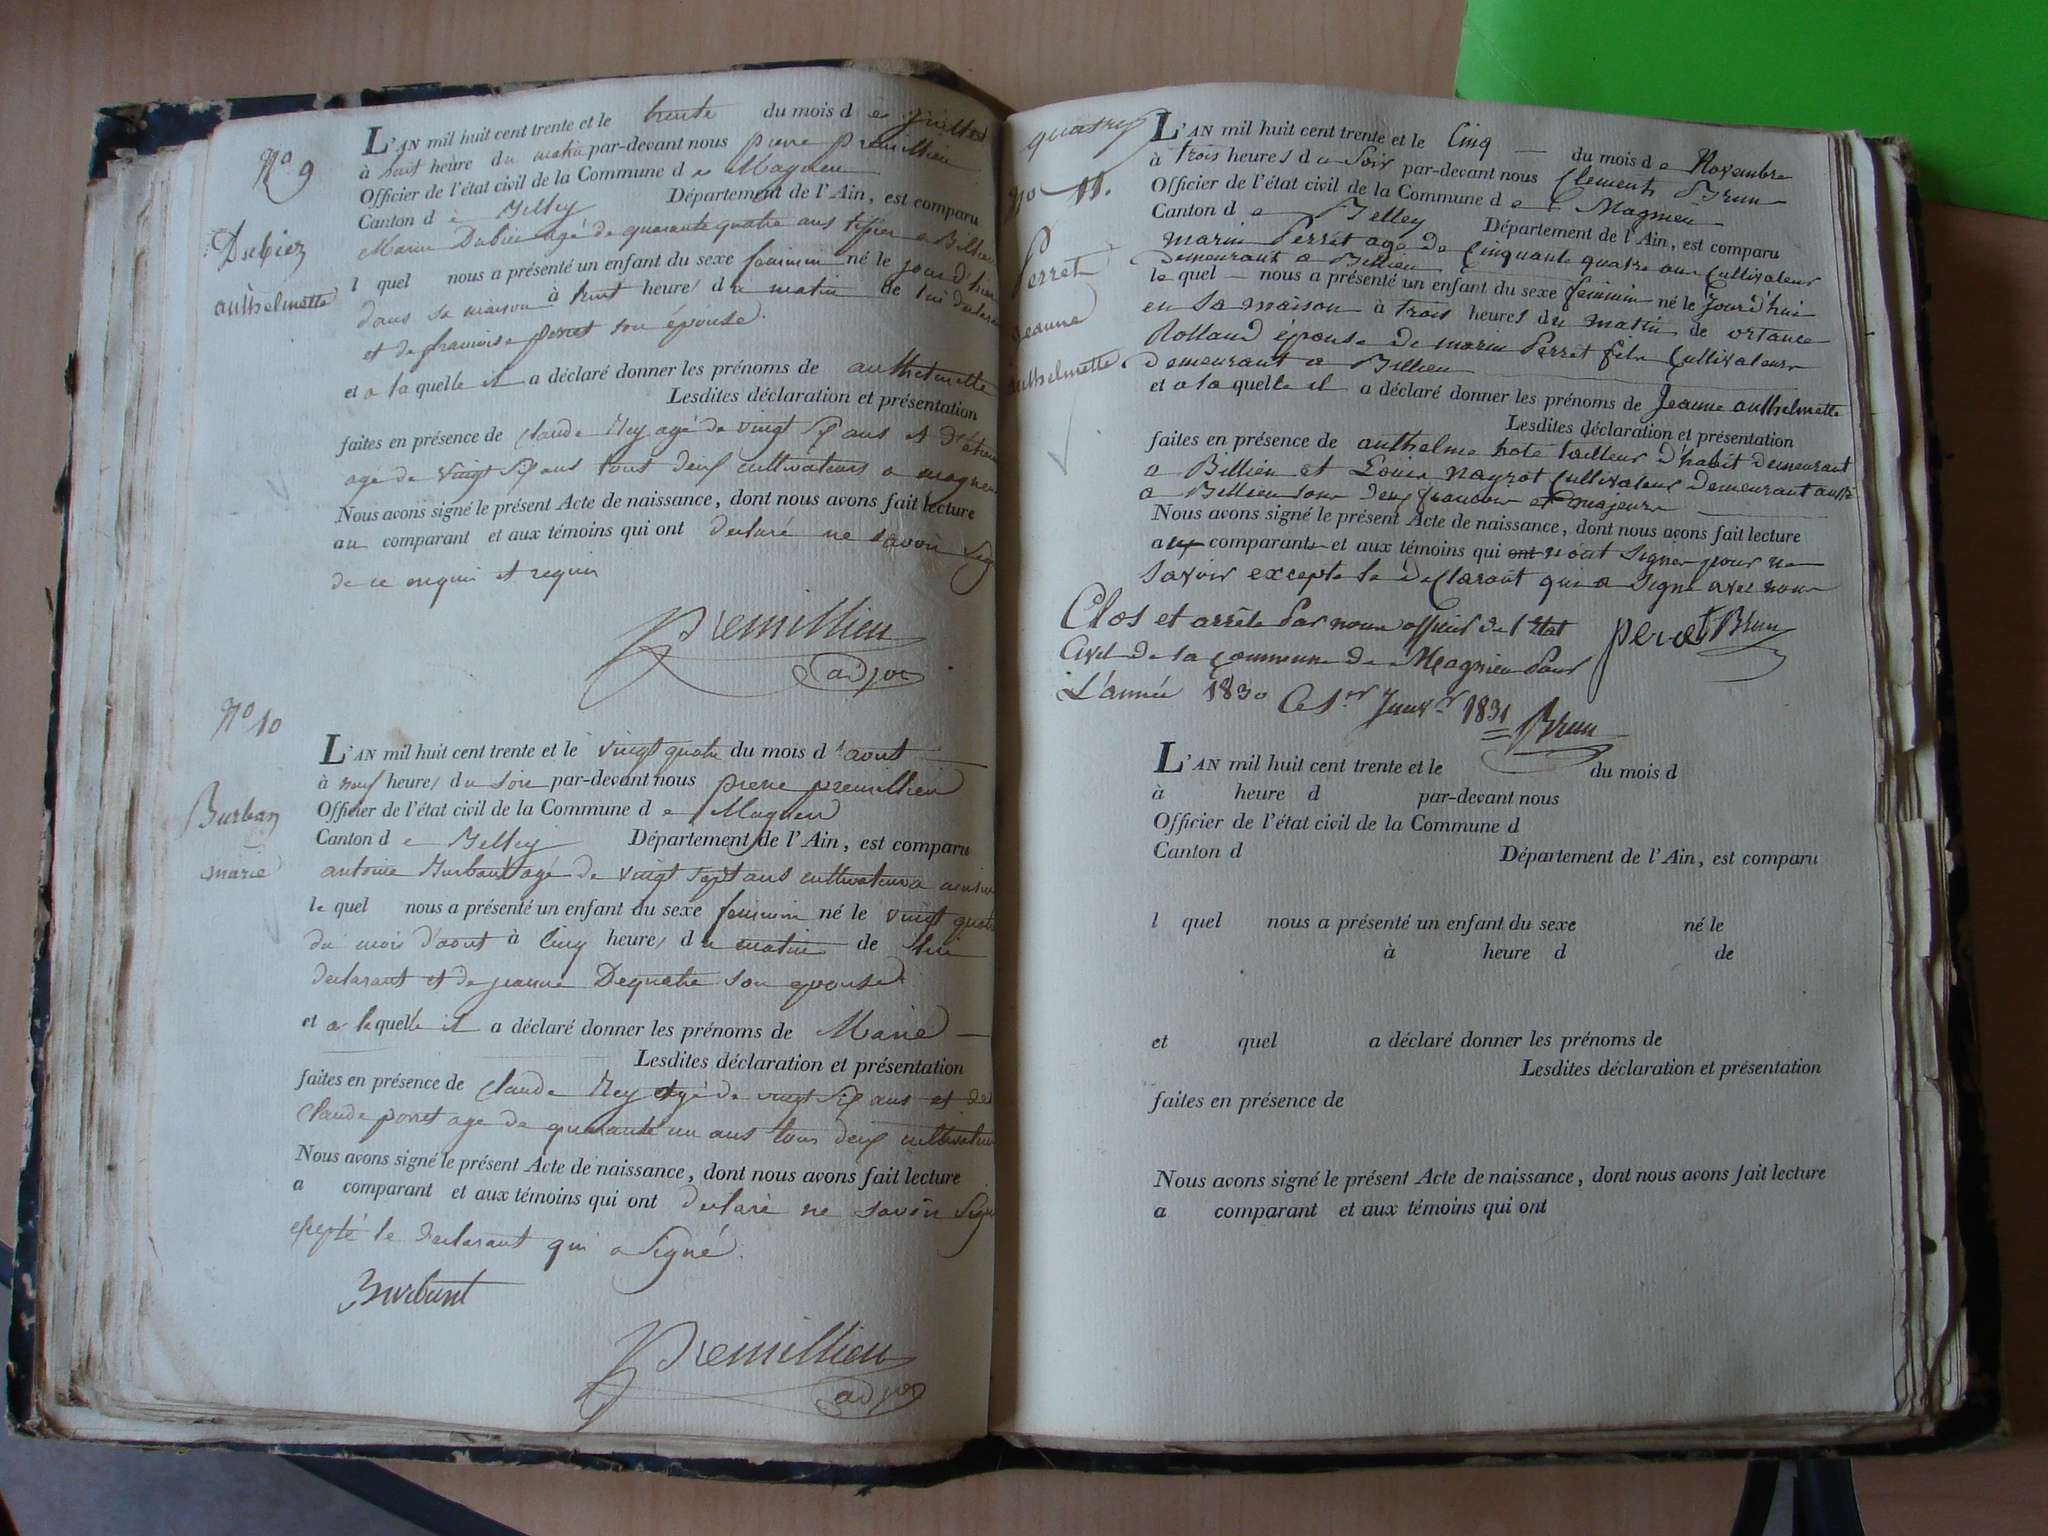 N.o 9
Dubiez
anthelmette
L'AN mil huit cent trente et le trente du mois de juillet
à huit heure du matin par-devant nous pierre premillieu
Officier de l'état civil de la Commune de Magnieu
Canton de Belley Département de l'Ain, est comparu
Marin Dubiez agé de quarante quatre ans a Billieu
l quel nous a présenté un enfant du sexe feminin né le jour d'hui
dans sa maison à heure du matin de lui declarant
et de francoise perret son épouse.
et a la quelle il a déclaré donner les prénoms de anthelmette
Lesdites déclaration et présentation
faites en présence de Claude Rey agé de vingt six ans et
agé de vingt six ans tous deux cultivateurs a magnieu
Nous avons signé le présent Acte de naissance, dont nous avons fait lecture
au comparant et aux témoins qui ont declaré ne savoir signe
de ce enquis et requis
premillieu
adjoint
N.o 10
Burban
marie
L'AN mil huit cent trente et le vingt quatre du mois d'aout
à neuf heure du soir par-devant nous pierre premillieu
Officier de l'état civil de la Commune de Magnieu
Canton de Belley Département de l'Ain, est comparu
antoine Burbant agé de vingt sept ans cultivateur a
le quel nous a présenté un enfant du sexe feminin né le vingt quatre
du mois d'aout à cinq heure du matin de lui
declarant et de jeanne Dequatre son epouse
et a laquelle il a déclaré donner les prénoms de Marie
Lesdites déclaration et présentation
faites en présence de Claude Rey agé de vingt six ans et de
Claude perret age de quarante un ans tous deux cultivateurs
Nous avons signé le présent Acte de naissance, dont nous avons fait lecture
a comparant et aux témoins qui ont declaré ne savoir signe
excepté le declarant qui a signé.
Burbant
premillieu
adjoint
quatre
No 11.
Perret
Jeanne
anthelmette
L'AN mil huit cent trente et le Cinq du mois de Novembre
à trois heures du Soir par-devant nous Clement Brun
Officier de l'état civil de la Commune de Magnieu
Canton de Belley Département de l'Ain, est comparu
marin Perret agé de Cinquante quatre ans Cultivateur
demeurant a Billieu
le quel nous a présenté un enfant du sexe feminin né le Jour d'hui
en sa maison à trois heures du matin de ortance
Rolland épouse de marin Perret fils Cultivateur
demeurant a Billieu
et a la quelle il a déclaré donner les prénoms de Jeanne anthelmette
Lesdites déclaration et présentation
faites en présence de anthelme hoté tailleur d'habit demeurant
a Billieu et Louis nayrot Cultivateur demeurant aussi
a Billieu tous deux francois et majeurs
Nous avons signé le présent Acte de naissance, dont nous avons fait lecture
aux comparants et aux témoins qui ont n'ont signer pour ne
savoir excepte le declarant qui a signe avec nous
Clos et arrêté Par nous officier de l'Etat perret Brun
Civil de la Commune de Magnieu Pour
L'année 1830 Ce 1.er Janv.er 1831 Brun
L'AN mil huit cent trente et le du mois d
à heure d par-devant nous
Officier de l'état civil de la Commune d
Canton d Département de l'Ain, est comparu
l quel nous a présenté un enfant du sexe né le
à heure d de
et quel a déclaré donner les prénoms de
Lesdites déclaration et présentation
faites en présence de
Nous avons signé le présent Acte de naissance, dont nous avons fait lecture
a comparant et aux témoins qui ont